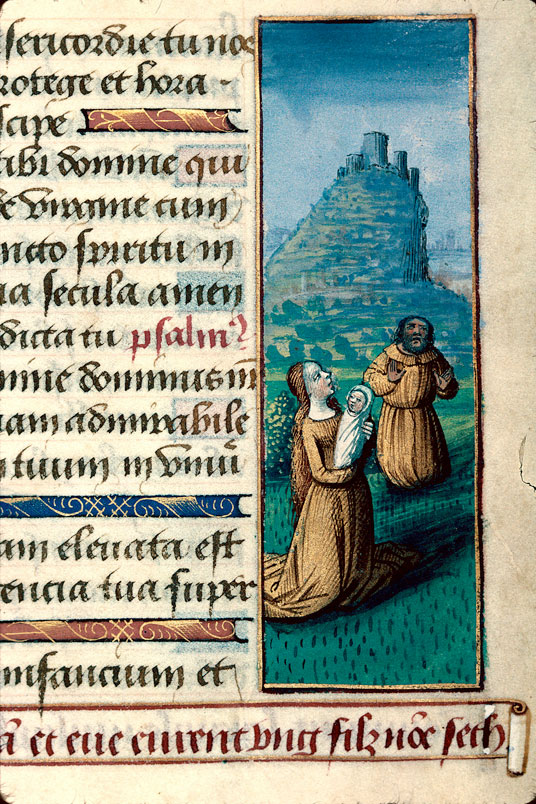 sericordie tu nos
rotege et hora
scipe
tibi domine qui
de virgine cum
ncto spiritu in
na secula amen
dicta tu psalmꝰ
mine dominus nr̄
uam admirabile
n tuum in vniu̅
am eleuata est
cencia tua super
infancium et
ā et eue eurent vng filz nōe seth